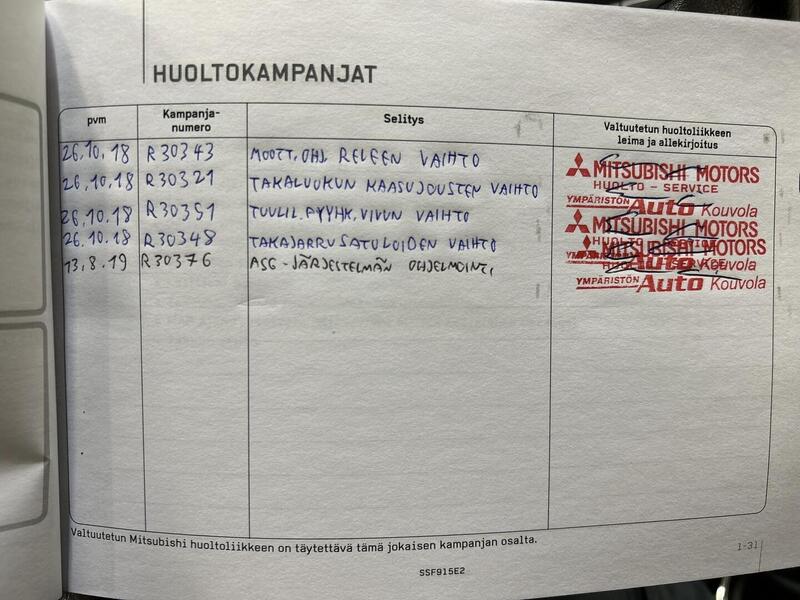 HUOLTOKAMPANJAT
pvm Kampanja-numero Selitys Valtuutetun huoltoliikkeen leima ja allekirjoitus
26.10.18 R30343 MOOTT.OHJ RELEEN VAIHTO
26.10.18 R30321 TAKALUUKUN KAASUJOUSTEN VAIHTO
26.10.18 R30351 TUULIL.PYYHK.VIVUN VAIHTO
26.10.18 R30348 TAKAJARRUSATULOIDEN VAIHTO
13.8.19 R30376 ASG-JÄRJESTELMÄN OHJELMOINTI
MITSUBISHI MOTORS
HUOLTO - SERVICE
YMPÄRISTÖN Auto Kouvola
MITSUBISHI MOTORS
HUOLTO
MITSUBISHI MOTORS
YMPÄRISTÖN Auto Kouvola
SERVICE
YMPÄRISTÖN Auto Kouvola
Valtuutetun Mitsubishi huoltoliikkeen on täytettävä tämä jokaisen kampanjan osalta.
1-31
SSF915E2